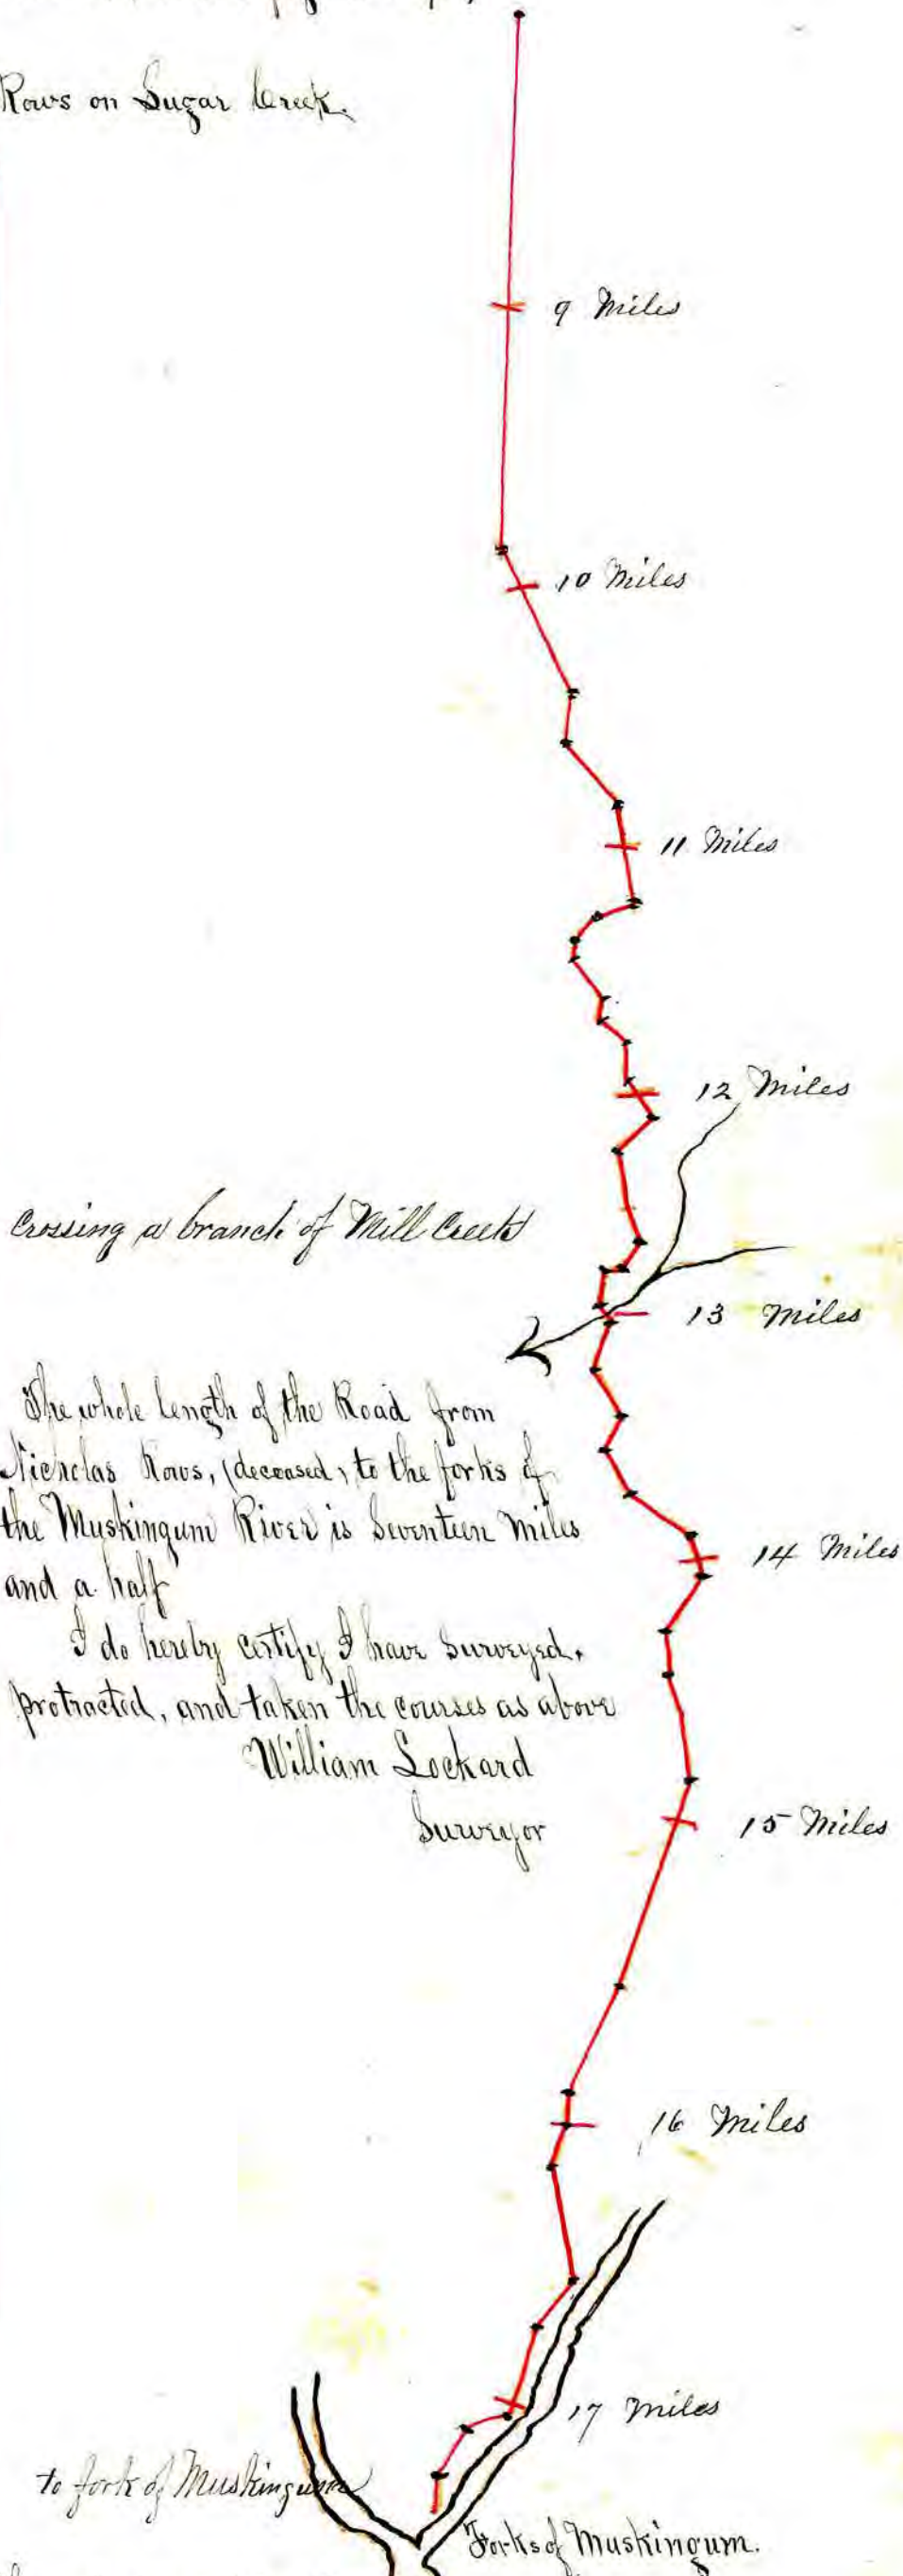 Rows on Sugar Creek.
9 Miles
10 Miles
11 Miles
12 Miles
Crossing a branch of Mill Creek
13 Miles
The whole length of the Road from
Nicholas Rows, (deceased) to the forks of
the Muskingum River is Seventeen miles
and a half
14 Miles
I do hereby certify I have Surveyed,
protracted, and taken the courses as above
William Lockard
Surveyor
15 Miles
16 Miles
17 miles
to fork of Muskingum
Forks of Muskingum.